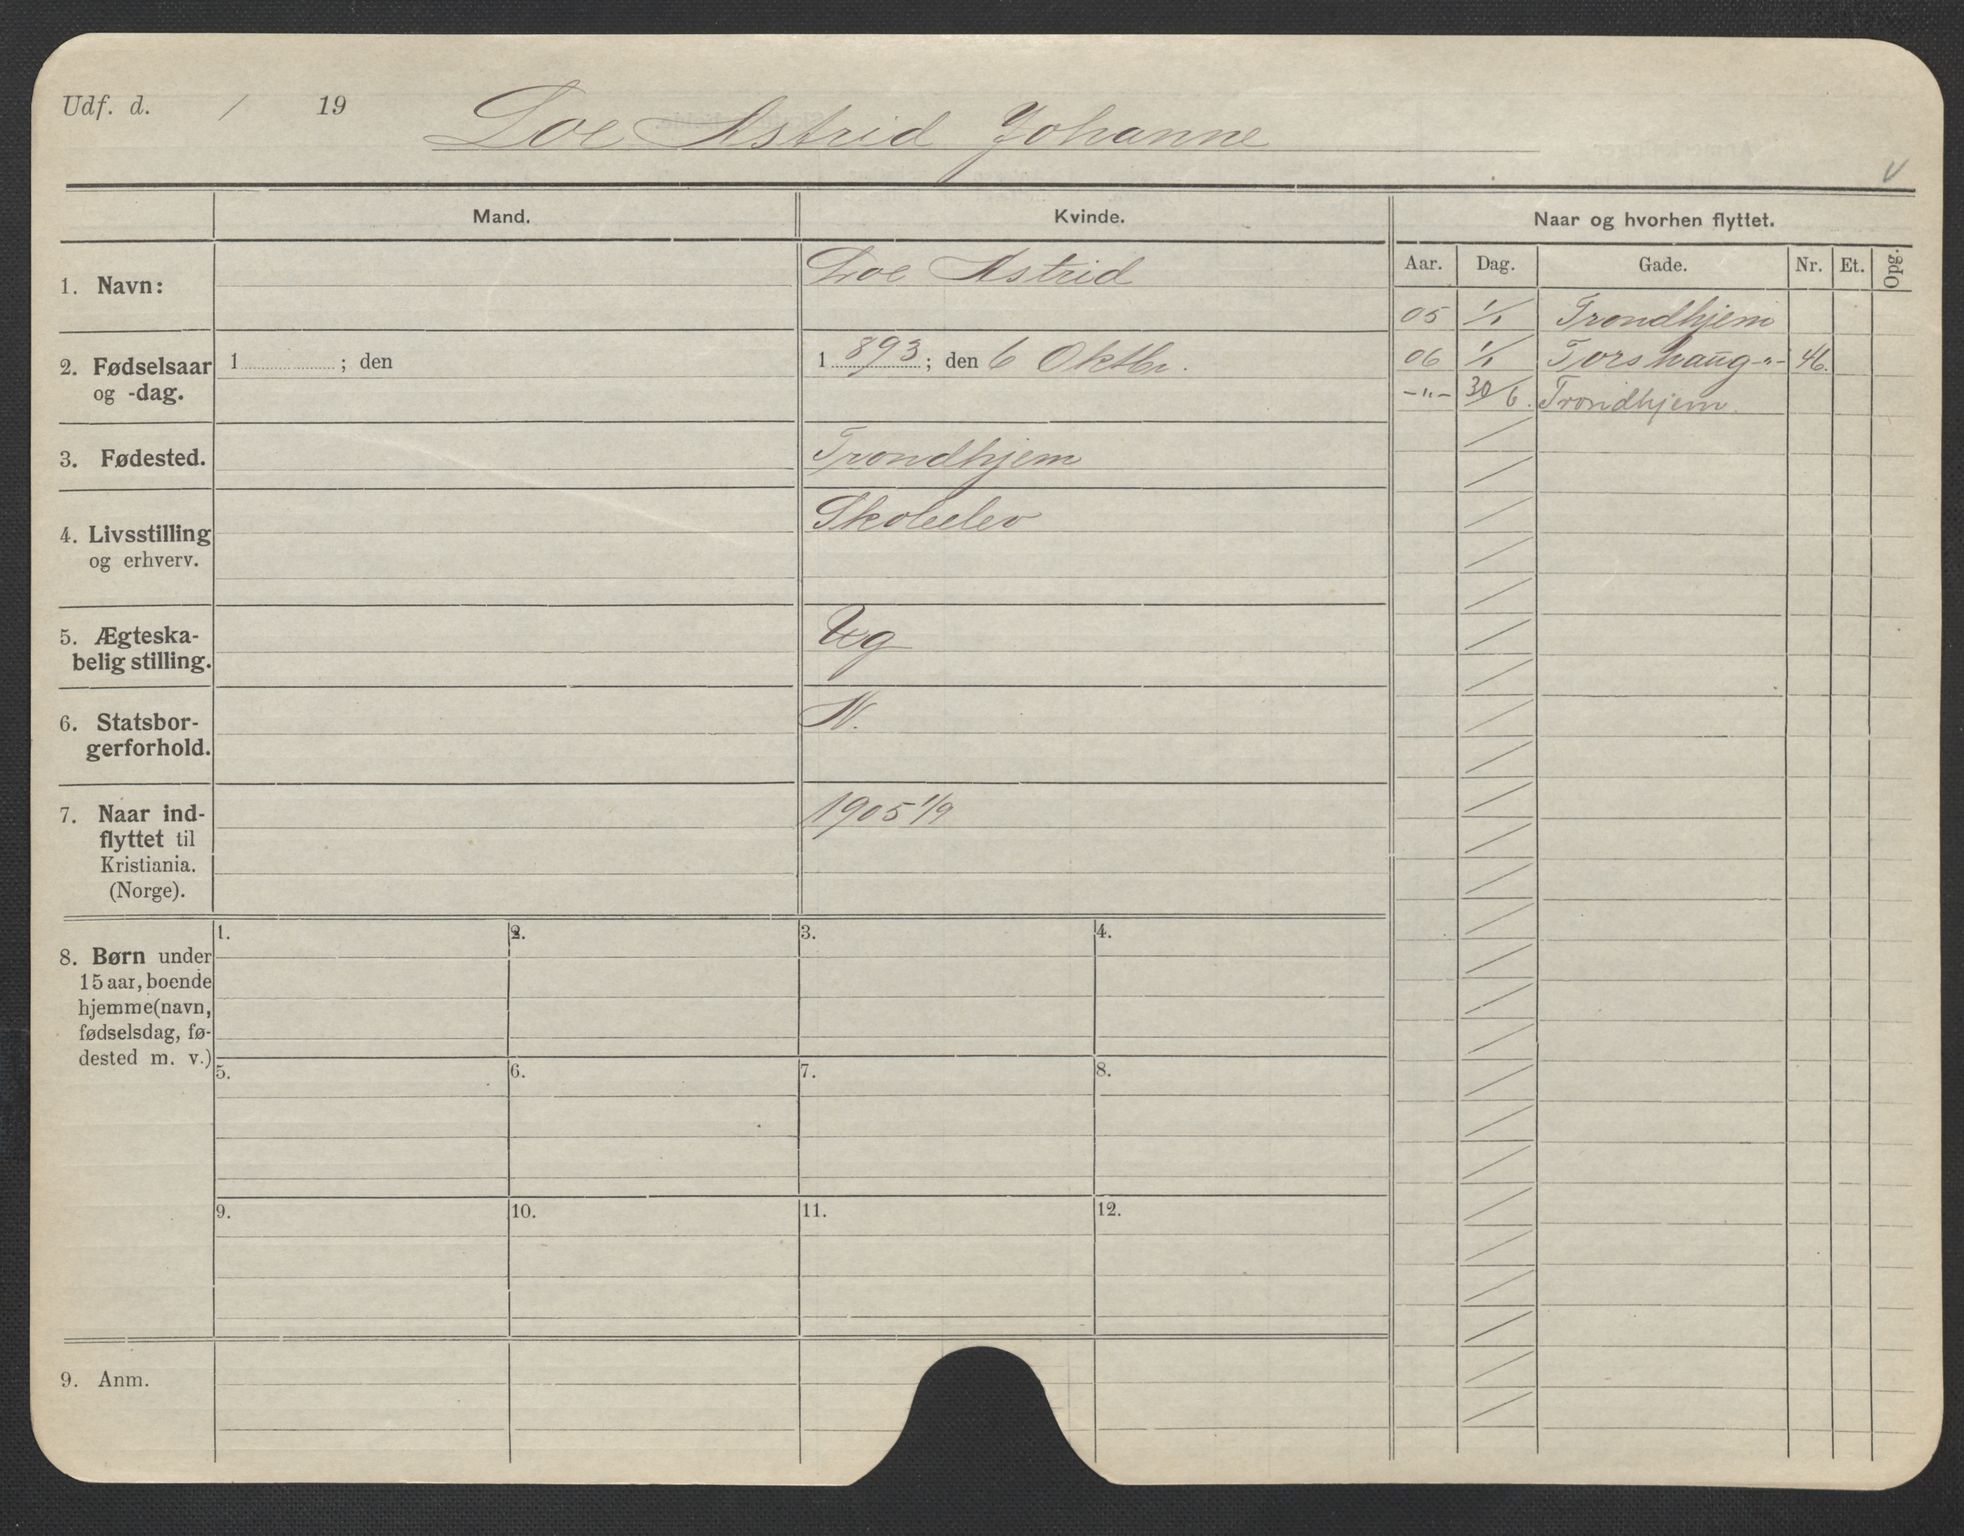 Udf. d. / 19
Loe Astrid Johanne
Mand.
Kvinde.
Naar og hvorhen flyttet.
Aar. Dag. Gade. Nr. Et. Opg.
1. Navn:
Loe Astrid
05 1/1 Trondhjem
2. Fødselsaar
og -dag.
1 ; den
1893; den 6 Oktbr.
06 1/1 Torshaug-"- 46.
-"- 30/6. Trondhjem.
3. Fødested.
Trondhjem
4. Livsstilling
og erhverv.
Skoleelev
5. Ægteska-
belig stilling.
Ug
6. Statsbor-
gerforhold.
N.
7. Naar ind-
flyttet til
Kristiania.
(Norge).
1905 1/9
8. Børn under
15 aar, boende
hjemme (navn,
fødselsdag, fø-
dested m. v.)
1. 2. 3. 4.
5. 6. 7. 8.
9. 10. 11. 12.
9. Anm.